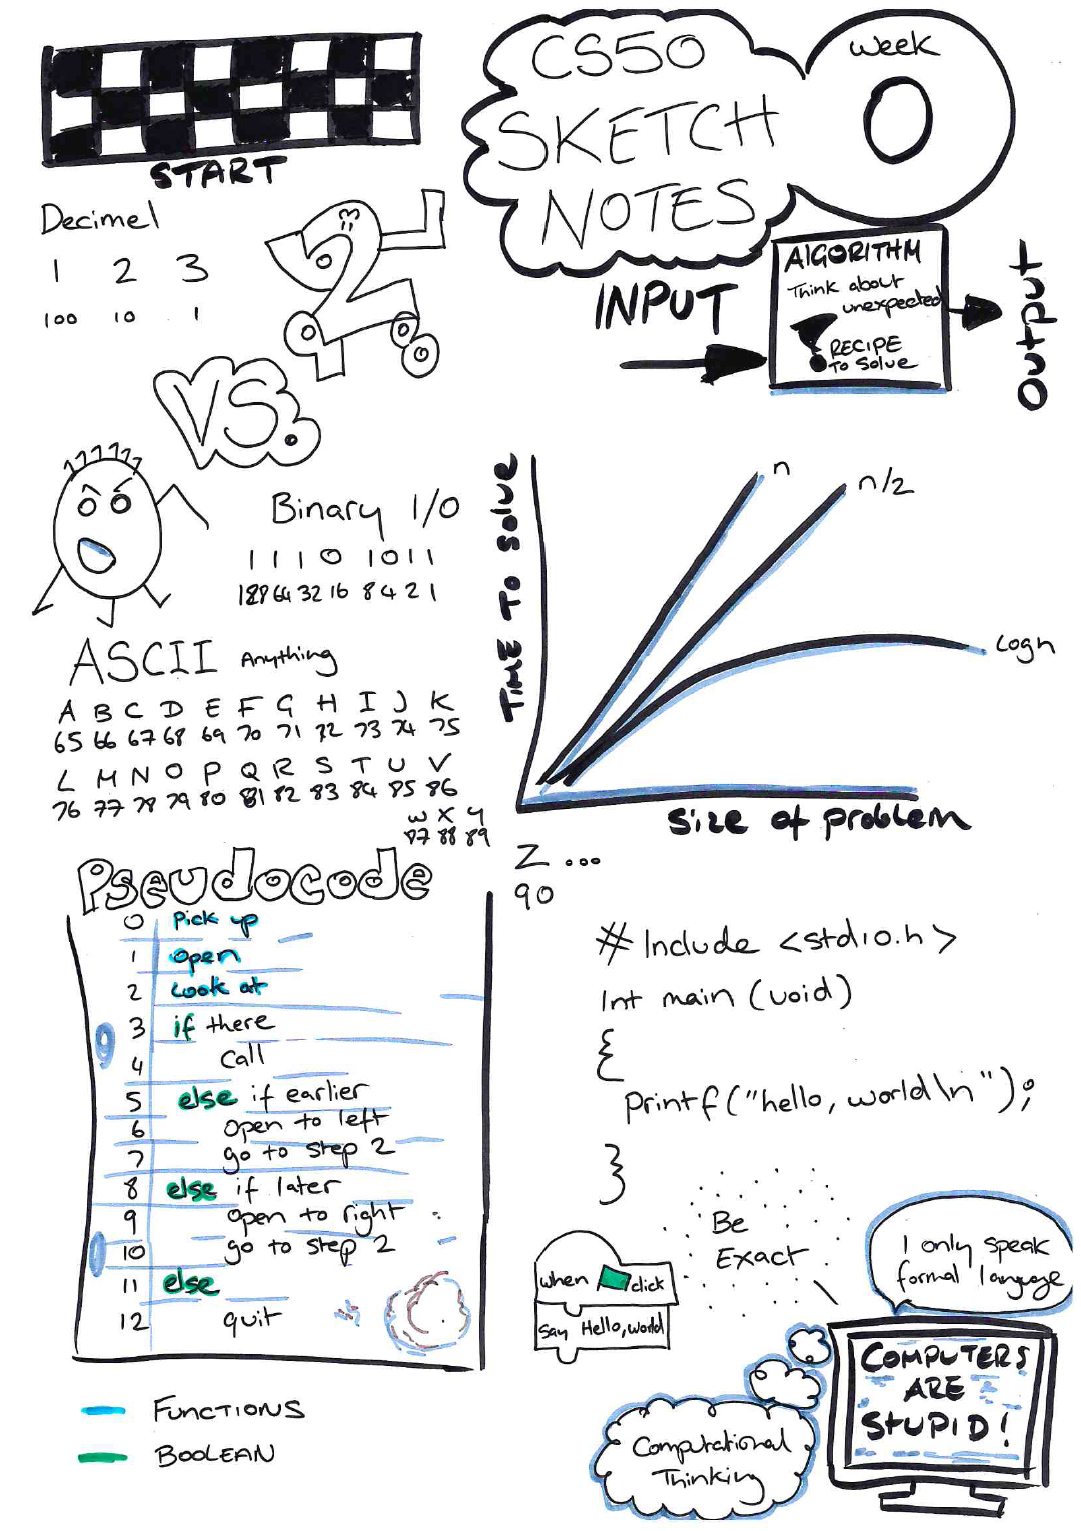 START
CS50
SKETCH
NOTES
Week
0
Decimel
1 2 3
100 10 1
VS.
INPUT
ALGORITHM
Think about
unexpected
RECIPE
To Solve
OUTPUT
Binary 1/0
1 1 1 0 1 0 1 1
128 64 32 16 8 4 2 1
ASCII Anything
A B C D E F G H I J K
65 66 67 68 69 70 71 72 73 74 75
L M N O P Q R S T U V
76 77 78 79 80 81 82 83 84 85 86
W X Y
87 88 89
Z ...
90
TIME TO Solve
n
n/2
logn
Size of problem
Pseudocode
0 Pick up
1 open
2 Look at
3 if there
4 Call
5 else if earlier
6 open to left
7 go to step 2
8 else if later
9 open to right
10 go to step 2
11 else
12 quit
FUNCTIONS
BOOLEAN
# Include <stdio.h>
Int main (void)
{
Printf("hello, world\n");
}
Be
Exact
when click
Say Hello, world
I only speak
formal language
COMPUTERS
ARE
STUPID!
Computational
Thinking